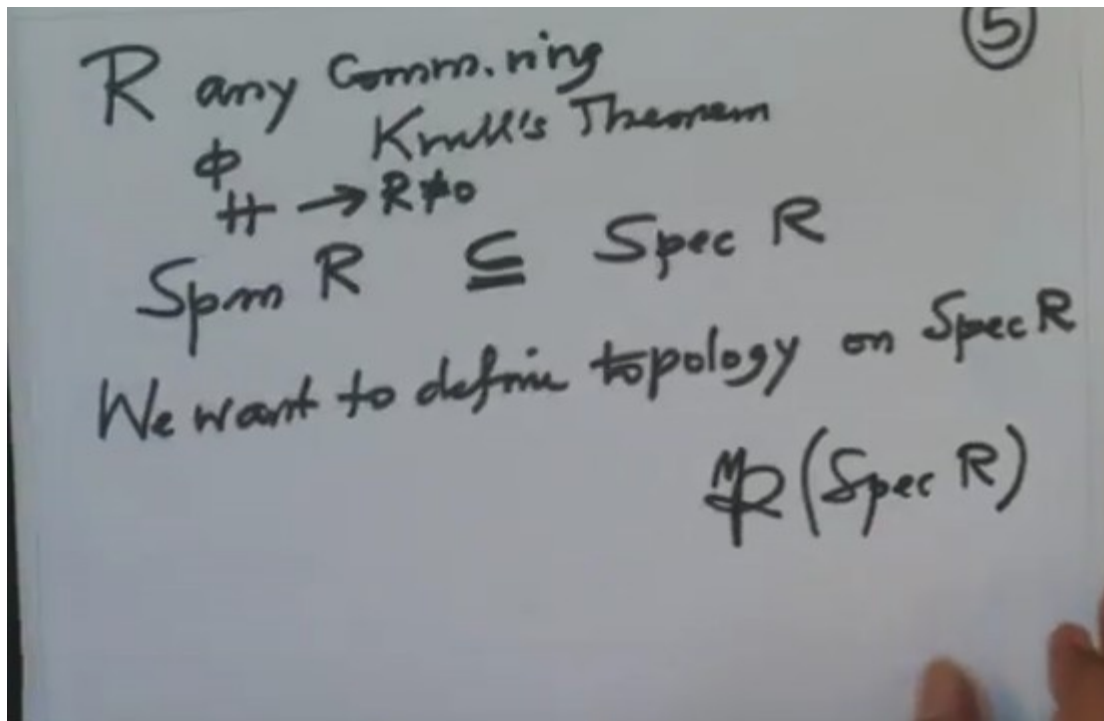 ⑤
R any Comm. ring
Krull's Theorem
φ
≠ → R≠0
Spm R ⊆ Spec R
We want to define topology on Spec R
(Spec R)